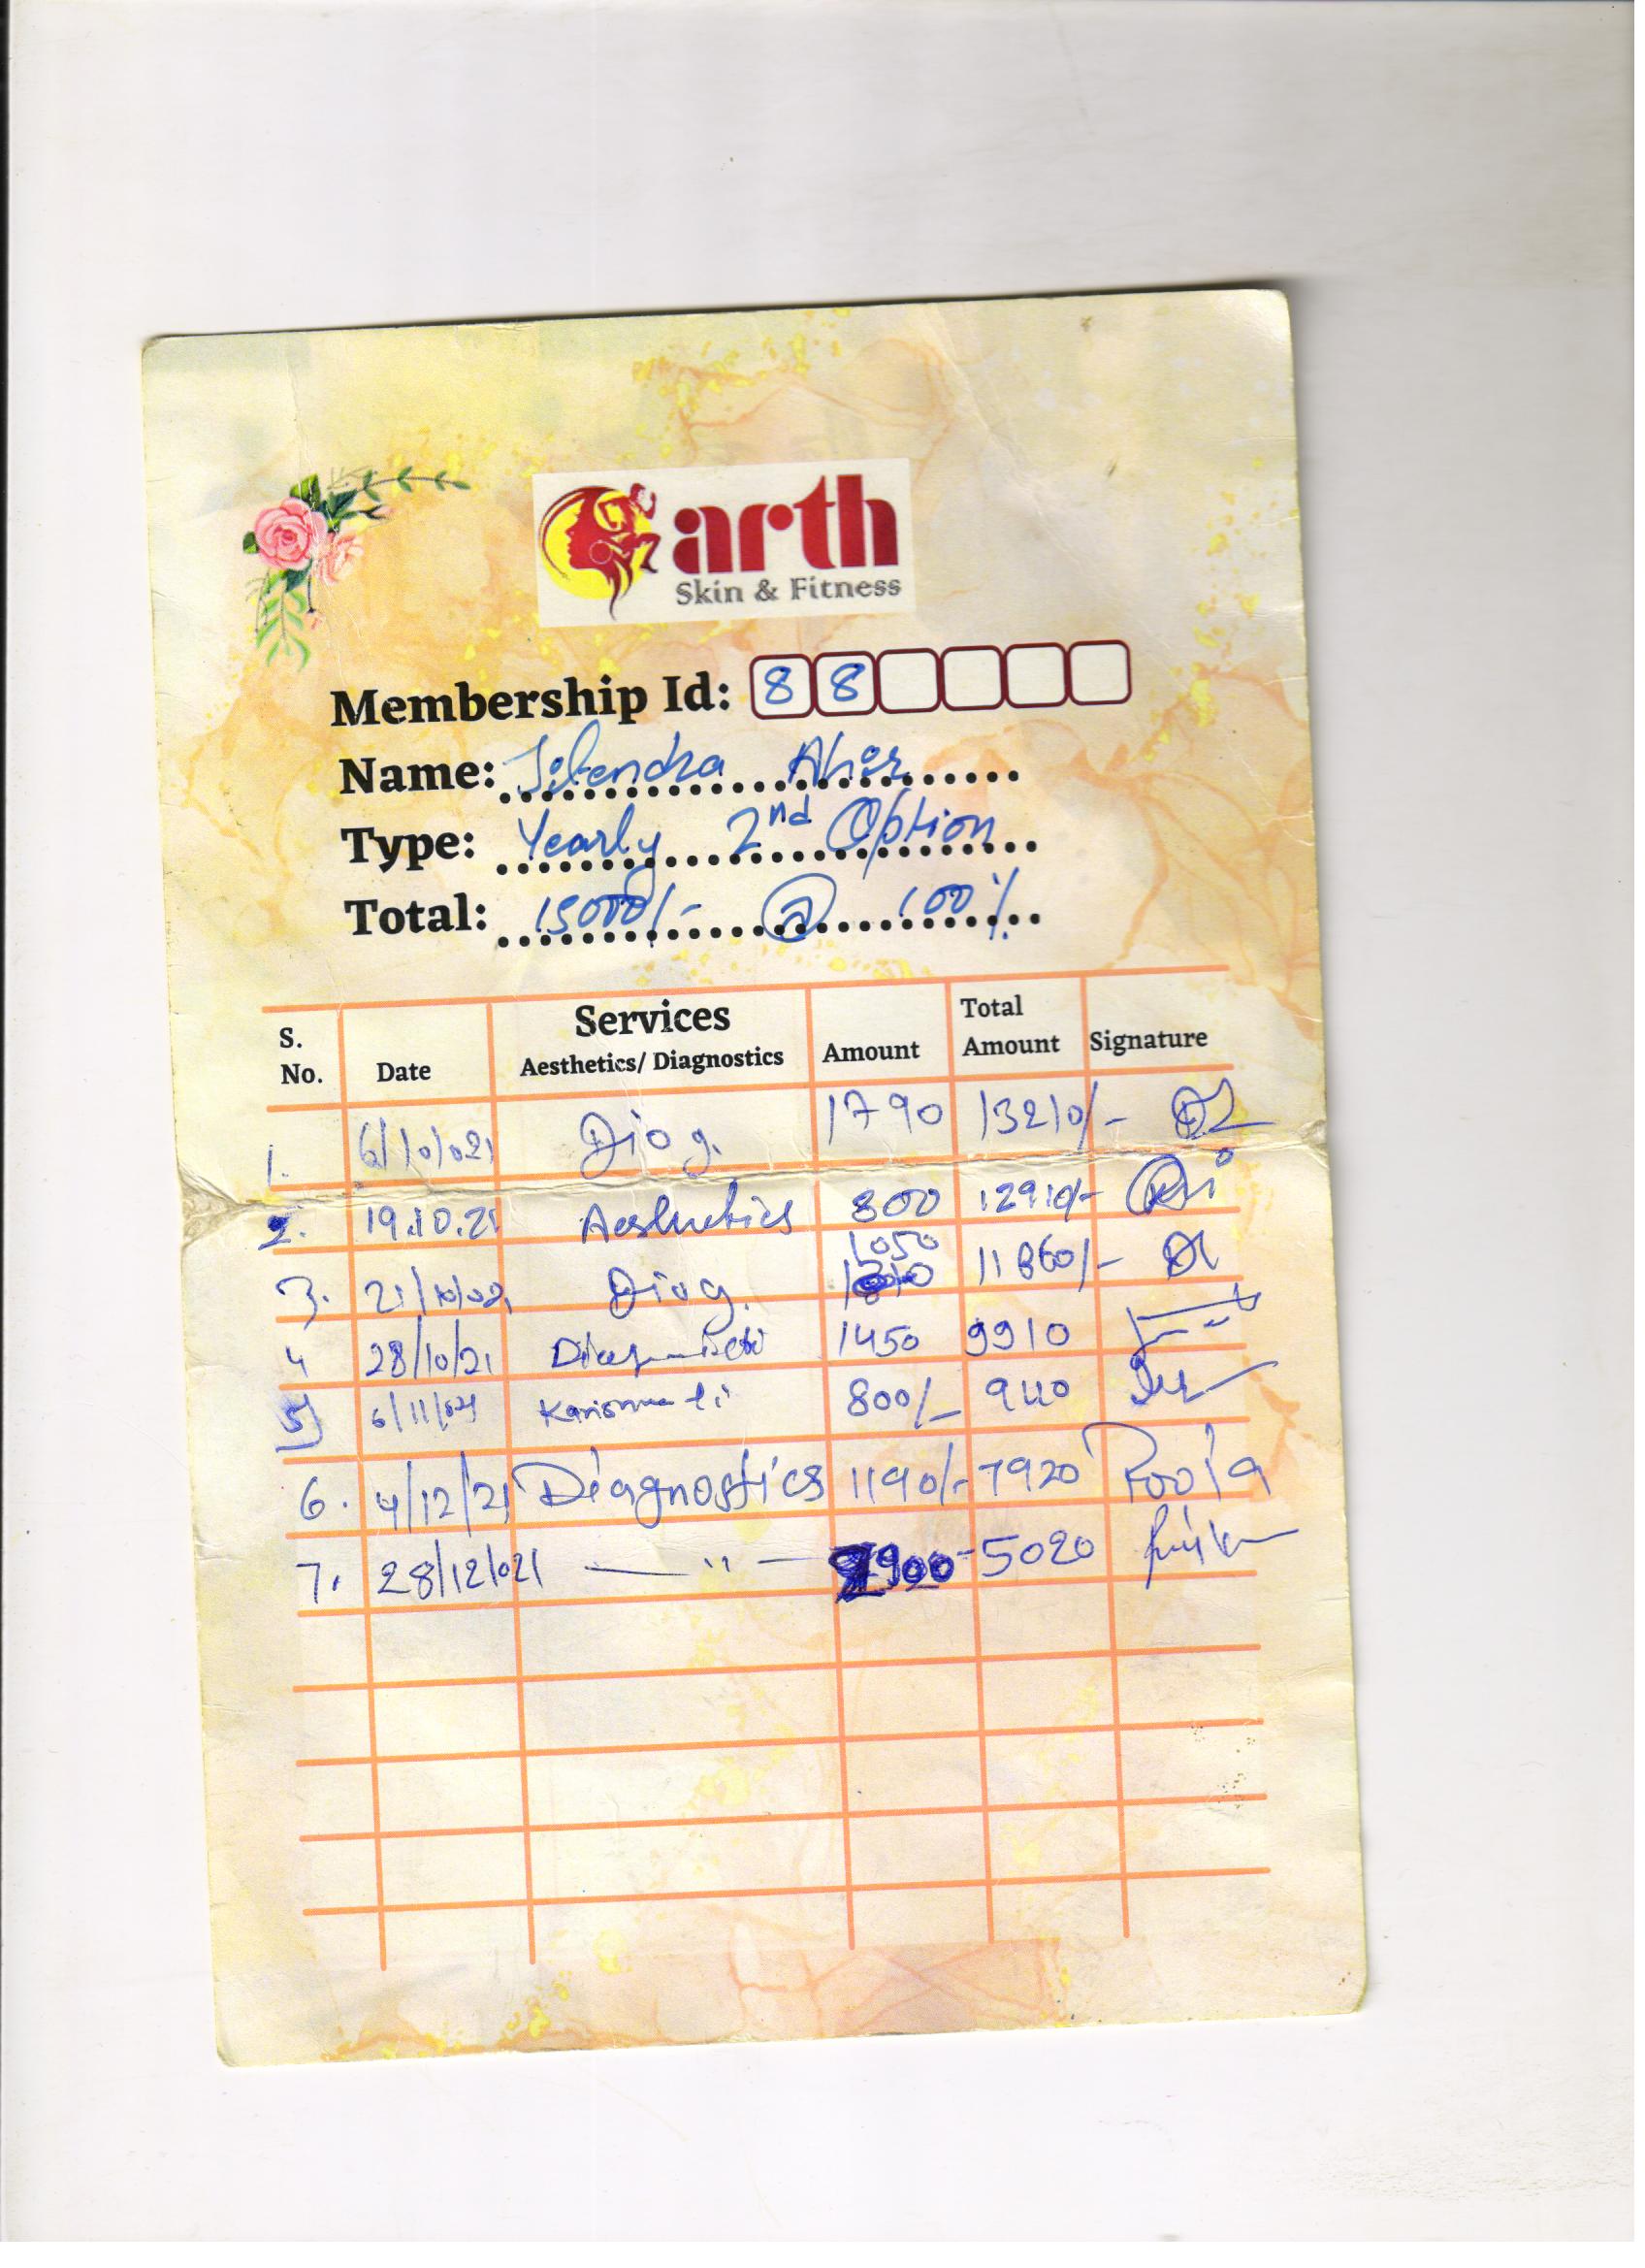 arth
Skin & Fitness
Membership Id: 88
Name: Jitendra Ahir
Type: Yearly 2nd Option
Total: 15000/- @ 100%
S. No. Date Services Aesthetics/ Diagnostics Amount Total Amount Signature
1. 6/10/021 Diag. 1790 13210/-
2. 19.10.21 Aesthetics 800 12910/-
3. 21/10/021 Diag. 1050 11860/-
4 28/10/21 1450 9910
5) 6/11/021 800/- 9110
6. 4/12/21 Diagnostics 1190/- 7920 Pooja
7. 28/12/021 — " — 2900 - 5020